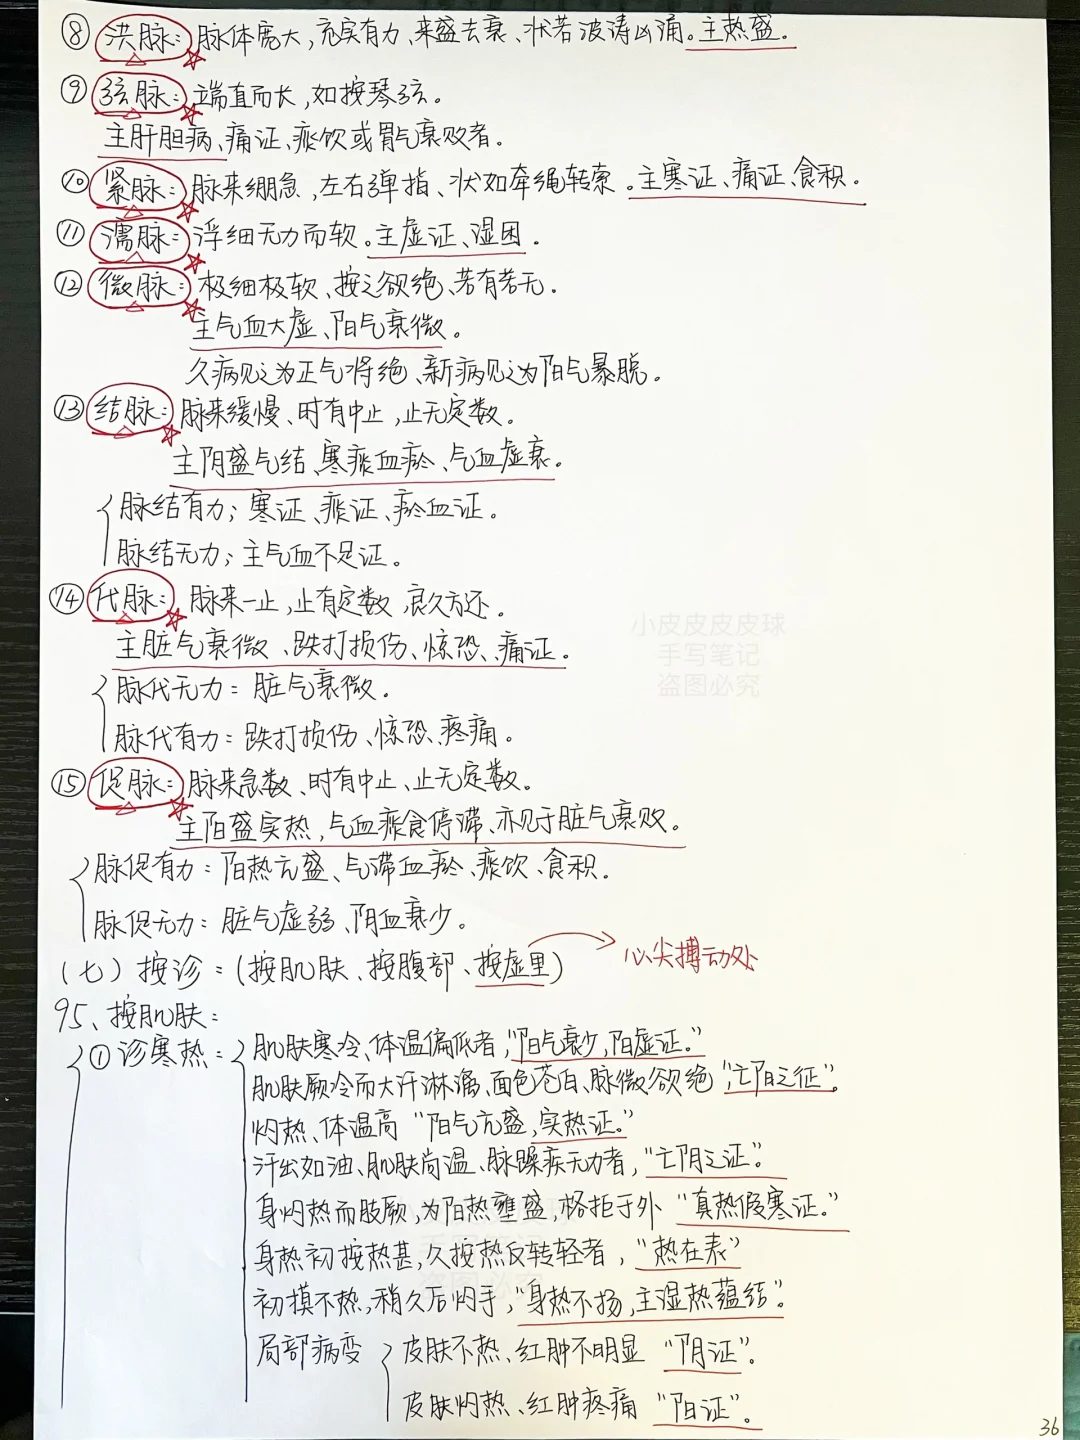 ⑧ 洪脉：脉体宽大，充实有力、来盛去衰、状若波涛汹涌。主热盛。
⑨ 弦脉：端直而长，如按琴弦。
主肝胆病、痛证、痰饮或胃气衰败者。
⑩ 紧脉：脉来绷急，左右弹指、状如牵绳转索。主寒证、痛证、食积。
⑪ 濡脉：浮细无力而软。主虚证、湿困。
⑫ 微脉：极细极软、按之欲绝、若有若无。
主气血大虚、阳气衰微。
久病见之为正气将绝、新病见之为阳气暴脱。
⑬ 结脉：脉来缓慢、时有中止，止无定数。
主阴盛气结、寒痰血瘀、气血虚衰。
脉结有力；寒证、痰证、瘀血证。
脉结无力；主气血不足证。
⑭ 代脉：脉来一止，止有定数，良久方还。
主脏气衰微、跌打损伤、惊恐、痛证。
脉代无力：脏气衰微。
脉代有力：跌打损伤、惊恐、疼痛。
小皮皮皮皮球
手写笔记
盗图必究
⑮ 促脉：脉来急数、时有中止、止无定数。
主阳盛实热，气血痰食停滞、亦见于脏气衰败。
脉促有力：阳热亢盛、气滞血瘀、痰饮、食积。
脉促无力：脏气虚弱、阴血衰少。
（七）按诊：（按肌肤、按腹部、按虚里） 心尖搏动处
95、按肌肤：
① 诊寒热：肌肤寒冷、体温偏低者，“阳气衰少，阳虚证。”
肌肤厥冷而大汗淋漓、面色苍白、脉微欲绝“亡阳之征”。
灼热、体温高“阳气亢盛，实热证。”
汗出如油、肌肤尚温、脉躁疾无力者，“亡阴之证”。
身灼热而肢厥，为阳热壅盛，格拒于外“真热假寒证。”
身热初按热甚，久按热反转轻者，“热在表”
初摸不热，稍久后灼手，“身热不扬，主湿热蕴结”。
局部病变 皮肤不热、红肿不明显“阴证”。
皮肤灼热、红肿疼痛“阳证”。
36